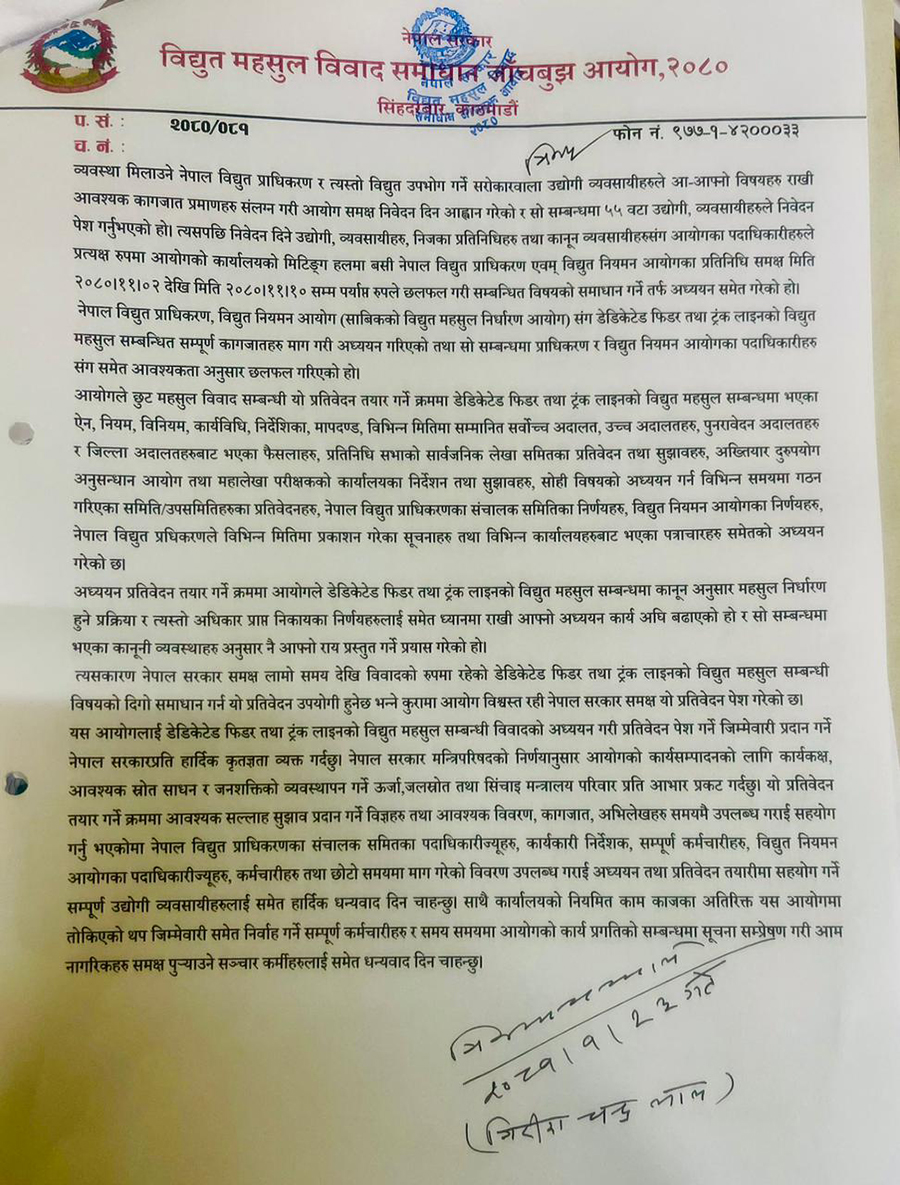 नेपाल सरकार
विद्युत महसुल विवाद समाधान जाँचबुझ आयोग,२०८०
सिंहदरबार, काठमाडौं
प. सं. : २०८०/०८१
फोन नं. ९७७-१-४२०००३३
च. नं. :
व्यवस्था मिलाउने नेपाल विद्युत प्राधिकरण र त्यस्तो विद्युत उपभोग गर्ने सरोकारवाला उद्योगी व्यवसायीहरुले आ-आफ्नो विषयहरु राखी
आवश्यक कागजात प्रमाणहरु संलग्न गरी आयोग समक्ष निवेदन दिन आह्वान गरेको र सो सम्बन्धमा ५५ वटा उद्योगी, व्यवसायीहरुले निवेदन
पेश गर्नुभएको हो। त्यसपछि निवेदन दिने उद्योगी, व्यवसायीहरु, निजका प्रतिनिधिहरु तथा कानून व्यवसायीहरुसंग आयोगका पदाधिकारीहरुले
प्रत्यक्ष रुपमा आयोगको कार्यालयको मिटिङ्ग हलमा बसी नेपाल विद्युत प्राधिकरण एवम् विद्युत नियमन आयोगका प्रतिनिधि समक्ष मिति
२०८०।११।०२ देखि मिति २०८०।११।१० सम्म पर्याप्त रुपले छलफल गरी सम्बन्धित विषयको समाधान गर्ने तर्फ अध्ययन समेत गरेको हो।
नेपाल विद्युत प्राधिकरण, विद्युत नियमन आयोग (साबिकको विद्युत महसुल निर्धारण आयोग) संग डेडिकेटेड फिडर तथा ट्रंक लाइनको विद्युत
महसुल सम्बन्धित सम्पूर्ण कागजातहरु माग गरी अध्ययन गरिएको तथा सो सम्बन्धमा प्राधिकरण र विद्युत नियमन आयोगका पदाधिकारीहरु
संग समेत आवश्यकता अनुसार छलफल गरिएको हो।
आयोगले छुट महसुल विवाद सम्बन्धी यो प्रतिवेदन तयार गर्ने क्रममा डेडिकेटेड फिडर तथा ट्रंक लाइनको विद्युत महसुल सम्बन्धमा भएका
ऐन, नियम, विनियम, कार्यविधि, निर्देशिका, मापदण्ड, विभिन्न मितिमा सम्मानित सर्वोच्च अदालत, उच्च अदालतहरु, पुनरावेदन अदालतहरु
र जिल्ला अदालतहरुबाट भएका फैसलाहरु, प्रतिनिधि सभाको सार्वजनिक लेखा समितका प्रतिवेदन तथा सुझावहरु, अख्तियार दुरुपयोग
अनुसन्धान आयोग तथा महालेखा परीक्षकको कार्यालयका निर्देशन तथा सुझावहरु, सोही विषयको अध्ययन गर्न विभिन्न समयमा गठन
गरिएका समिति/उपसमितिहरुका प्रतिवेदनहरु, नेपाल विद्युत प्राधिकरणका संचालक समितिका निर्णयहरु, विद्युत नियमन आयोगका निर्णयहरु,
नेपाल विद्युत प्रधिकरणले विभिन्न मितिमा प्रकाशन गरेका सूचनाहरु तथा विभिन्न कार्यालयहरुबाट भएका पत्राचारहरु समेतको अध्ययन
गरेको छ।
अध्ययन प्रतिवेदन तयार गर्ने क्रममा आयोगले डेडिकेटेड फिडर तथा ट्रंक लाइनको विद्युत महसुल सम्बन्धमा कानून अनुसार महसुल निर्धारण
हुने प्रक्रिया र त्यस्तो अधिकार प्राप्त निकायका निर्णयहरुलाई समेत ध्यानमा राखी आफ्नो अध्ययन कार्य अघि बढाएको हो र सो सम्बन्धमा
भएका कानूनी व्यवस्थाहरु अनुसार नै आफ्नो राय प्रस्तुत गर्ने प्रयास गरेको हो।
त्यसकारण नेपाल सरकार समक्ष लामो समय देखि विवादको रुपमा रहेको डेडिकेटेड फिडर तथा ट्रंक लाइनको विद्युत महसुल सम्बन्धी
विषयको दिगो समाधान गर्न यो प्रतिवेदन उपयोगी हुनेछ भन्ने कुरामा आयोग विश्वस्त रही नेपाल सरकार समक्ष यो प्रतिवेदन पेश गरेको छ।
यस आयोगलाई डेडिकेटेड फिडर तथा ट्रंक लाइनको विद्युत महसुल सम्बन्धी विवादको अध्ययन गरी प्रतिवेदन पेश गर्ने जिम्मेवारी प्रदान गर्ने
नेपाल सरकारप्रति हार्दिक कृतज्ञता व्यक्त गर्दछु। नेपाल सरकार मन्त्रिपरिषदको निर्णयानुसार आयोगको कार्यसम्पादनको लागि कार्यकक्ष,
आवश्यक स्रोत साधन र जनशक्तिको व्यवस्थापन गर्ने ऊर्जा,जलस्रोत तथा सिंचाइ मन्त्रालय परिवार प्रति आभार प्रकट गर्दछु। यो प्रतिवेदन
तयार गर्ने क्रममा आवश्यक सल्लाह सुझाव प्रदान गर्ने विज्ञहरु तथा आवश्यक विवरण, कागजात, अभिलेखहरु समयमै उपलब्ध गराई सहयोग
गर्नु भएकोमा नेपाल विद्युत प्राधिकरणका संचालक समितका पदाधिकारीज्यूहरु, कार्यकारी निर्देशक, सम्पूर्ण कर्मचारीहरु, विद्युत नियमन
आयोगका पदाधिकारीज्यूहरु, कर्मचारीहरु तथा छोटो समयमा माग गरेको विवरण उपलब्ध गराई अध्ययन तथा प्रतिवेदन तयारीमा सहयोग गर्ने
सम्पूर्ण उद्योगी व्यवसायीहरुलाई समेत हार्दिक धन्यवाद दिन चाहन्छु। साथै कार्यालयको नियमित काम काजका अतिरिक्त यस आयोगमा
तोकिएको थप जिम्मेवारी समेत निर्वाह गर्ने सम्पूर्ण कर्मचारीहरु र समय समयमा आयोगको कार्य प्रगतिको सम्बन्धमा सूचना सम्प्रेषण गरी आम
नागरिकहरु समक्ष पुऱ्याउने सञ्चार कर्मीहरुलाई समेत धन्यवाद दिन चाहन्छु।
२०८१।१।२३ गते
चन्द्र लाल)